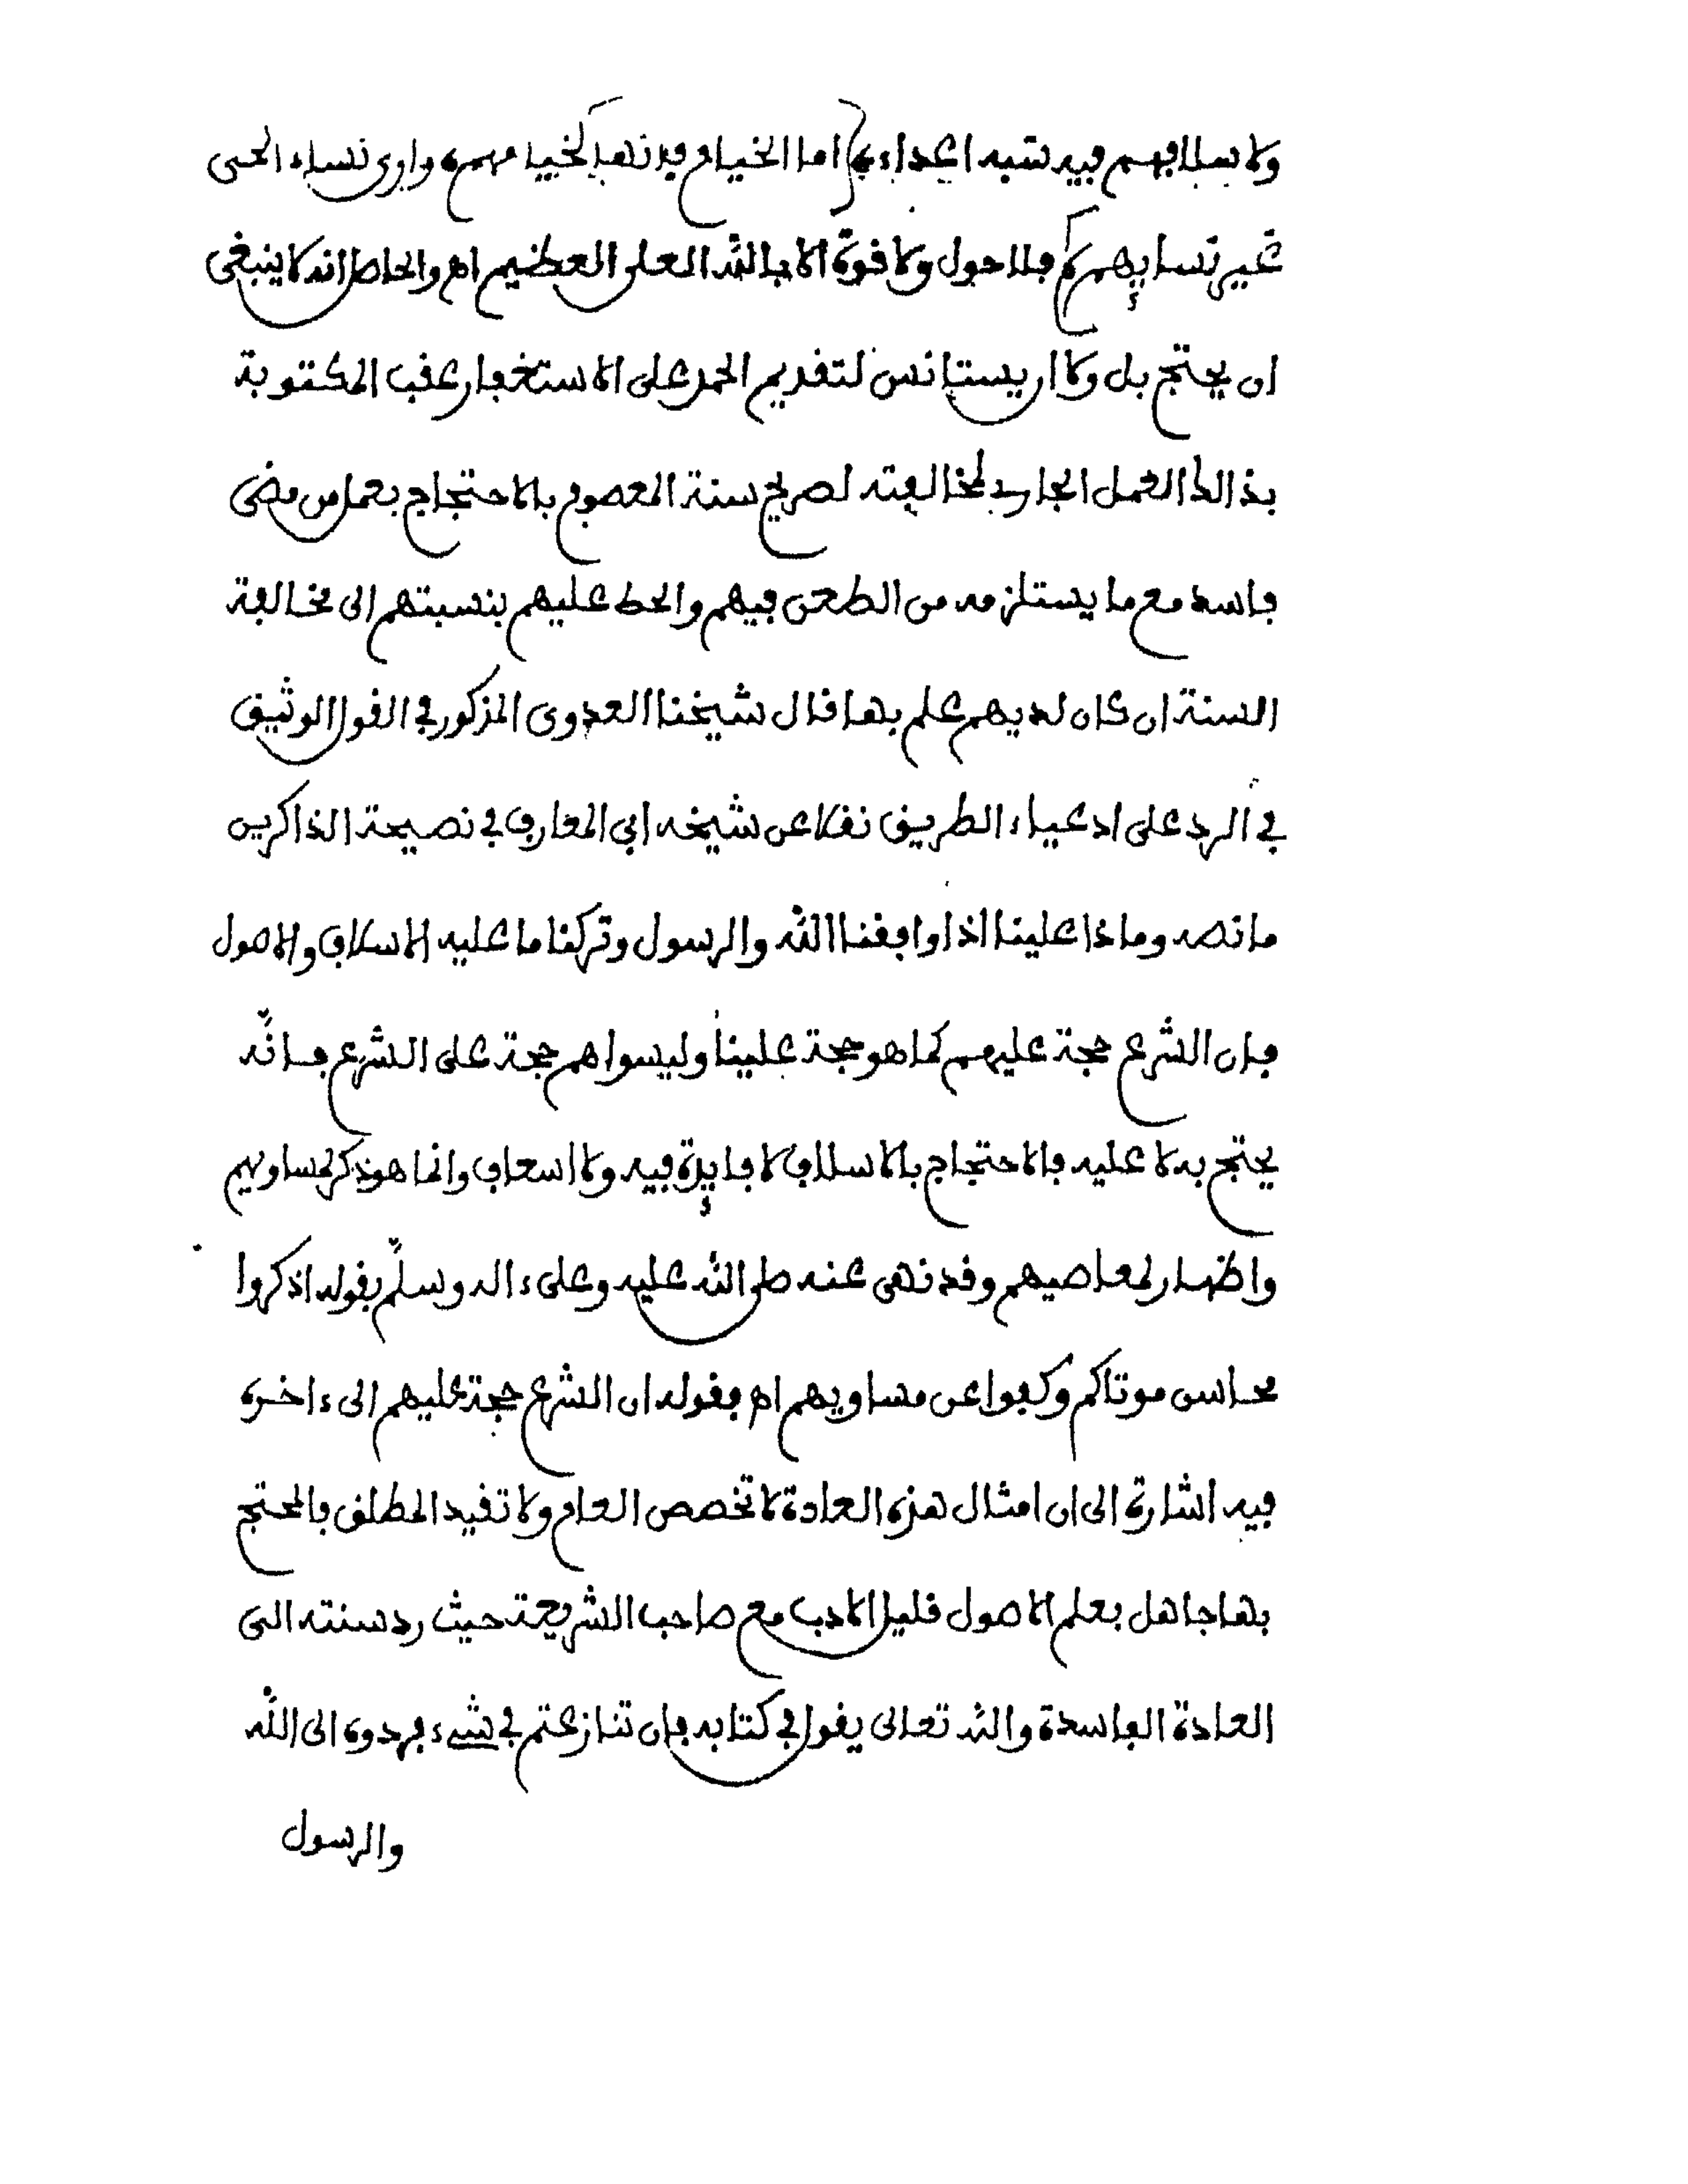 ولا بسلافهم فيه شبه اعداء به اما الخيام فإنها كخيامهم وارى نساء الحى
غير نسايهم فلا حول ولا قوة الا بالله العلى العظيم اه والحاصل انه لا ينبغى
ان يحتج بل ولا ان يستانس لتقديم الحمد على الاستغفار عقب المكتوبة
بذالك العمل الجارى لمخالفته لصريح سنة المعصوم بالاحتجاج بعمل من مضى
فاسد مع ما يستلزمه من الطعن فيهم والحط عليهم بنسبتهم الى مخالفة
السنة ان كان لديهم علم بها قال شيخنا العدوى المذكور فى القول الوثيق
فى الرد على ادعياء الطريق نقلا عن شيخه ابى المعارف فى نصيحة الذاكرين
ما نصه وماذا علينا اذا وافقنا الله والرسول وتركنا ما عليه الاسلاف والاصول
فإن الشرع حجة عليهم كما هو حجة علينا وليسوا هم حجة على الشرع فإنّه
يحتج به لا عليه فالاحتجاج بالاسلاف لا فايدة فيه ولا اسعاف وانما هو ذكر لمساويهم
واظهار لمعاصيهم وقد نهى عنه صلى الله عليه وعلى ءاله وسلّم بقوله اذكروا
محاسن موتاكم وكفوا عن مساويهم اه فقوله ان الشرع حجة عليهم الى ءاخره
فيه اشارة الى ان امثال هذه العادة لا تخصص العام ولا تقيد المطلق فالمحتج
بها جاهل بعلم الاصول قليل الادب مع صاحب الشريعة حيث رد سنته الى
العادة الفاسدة والله تعالى يقول فى كتابه فإن تنازعتم فى شىء فردوه الى الله
والرسول